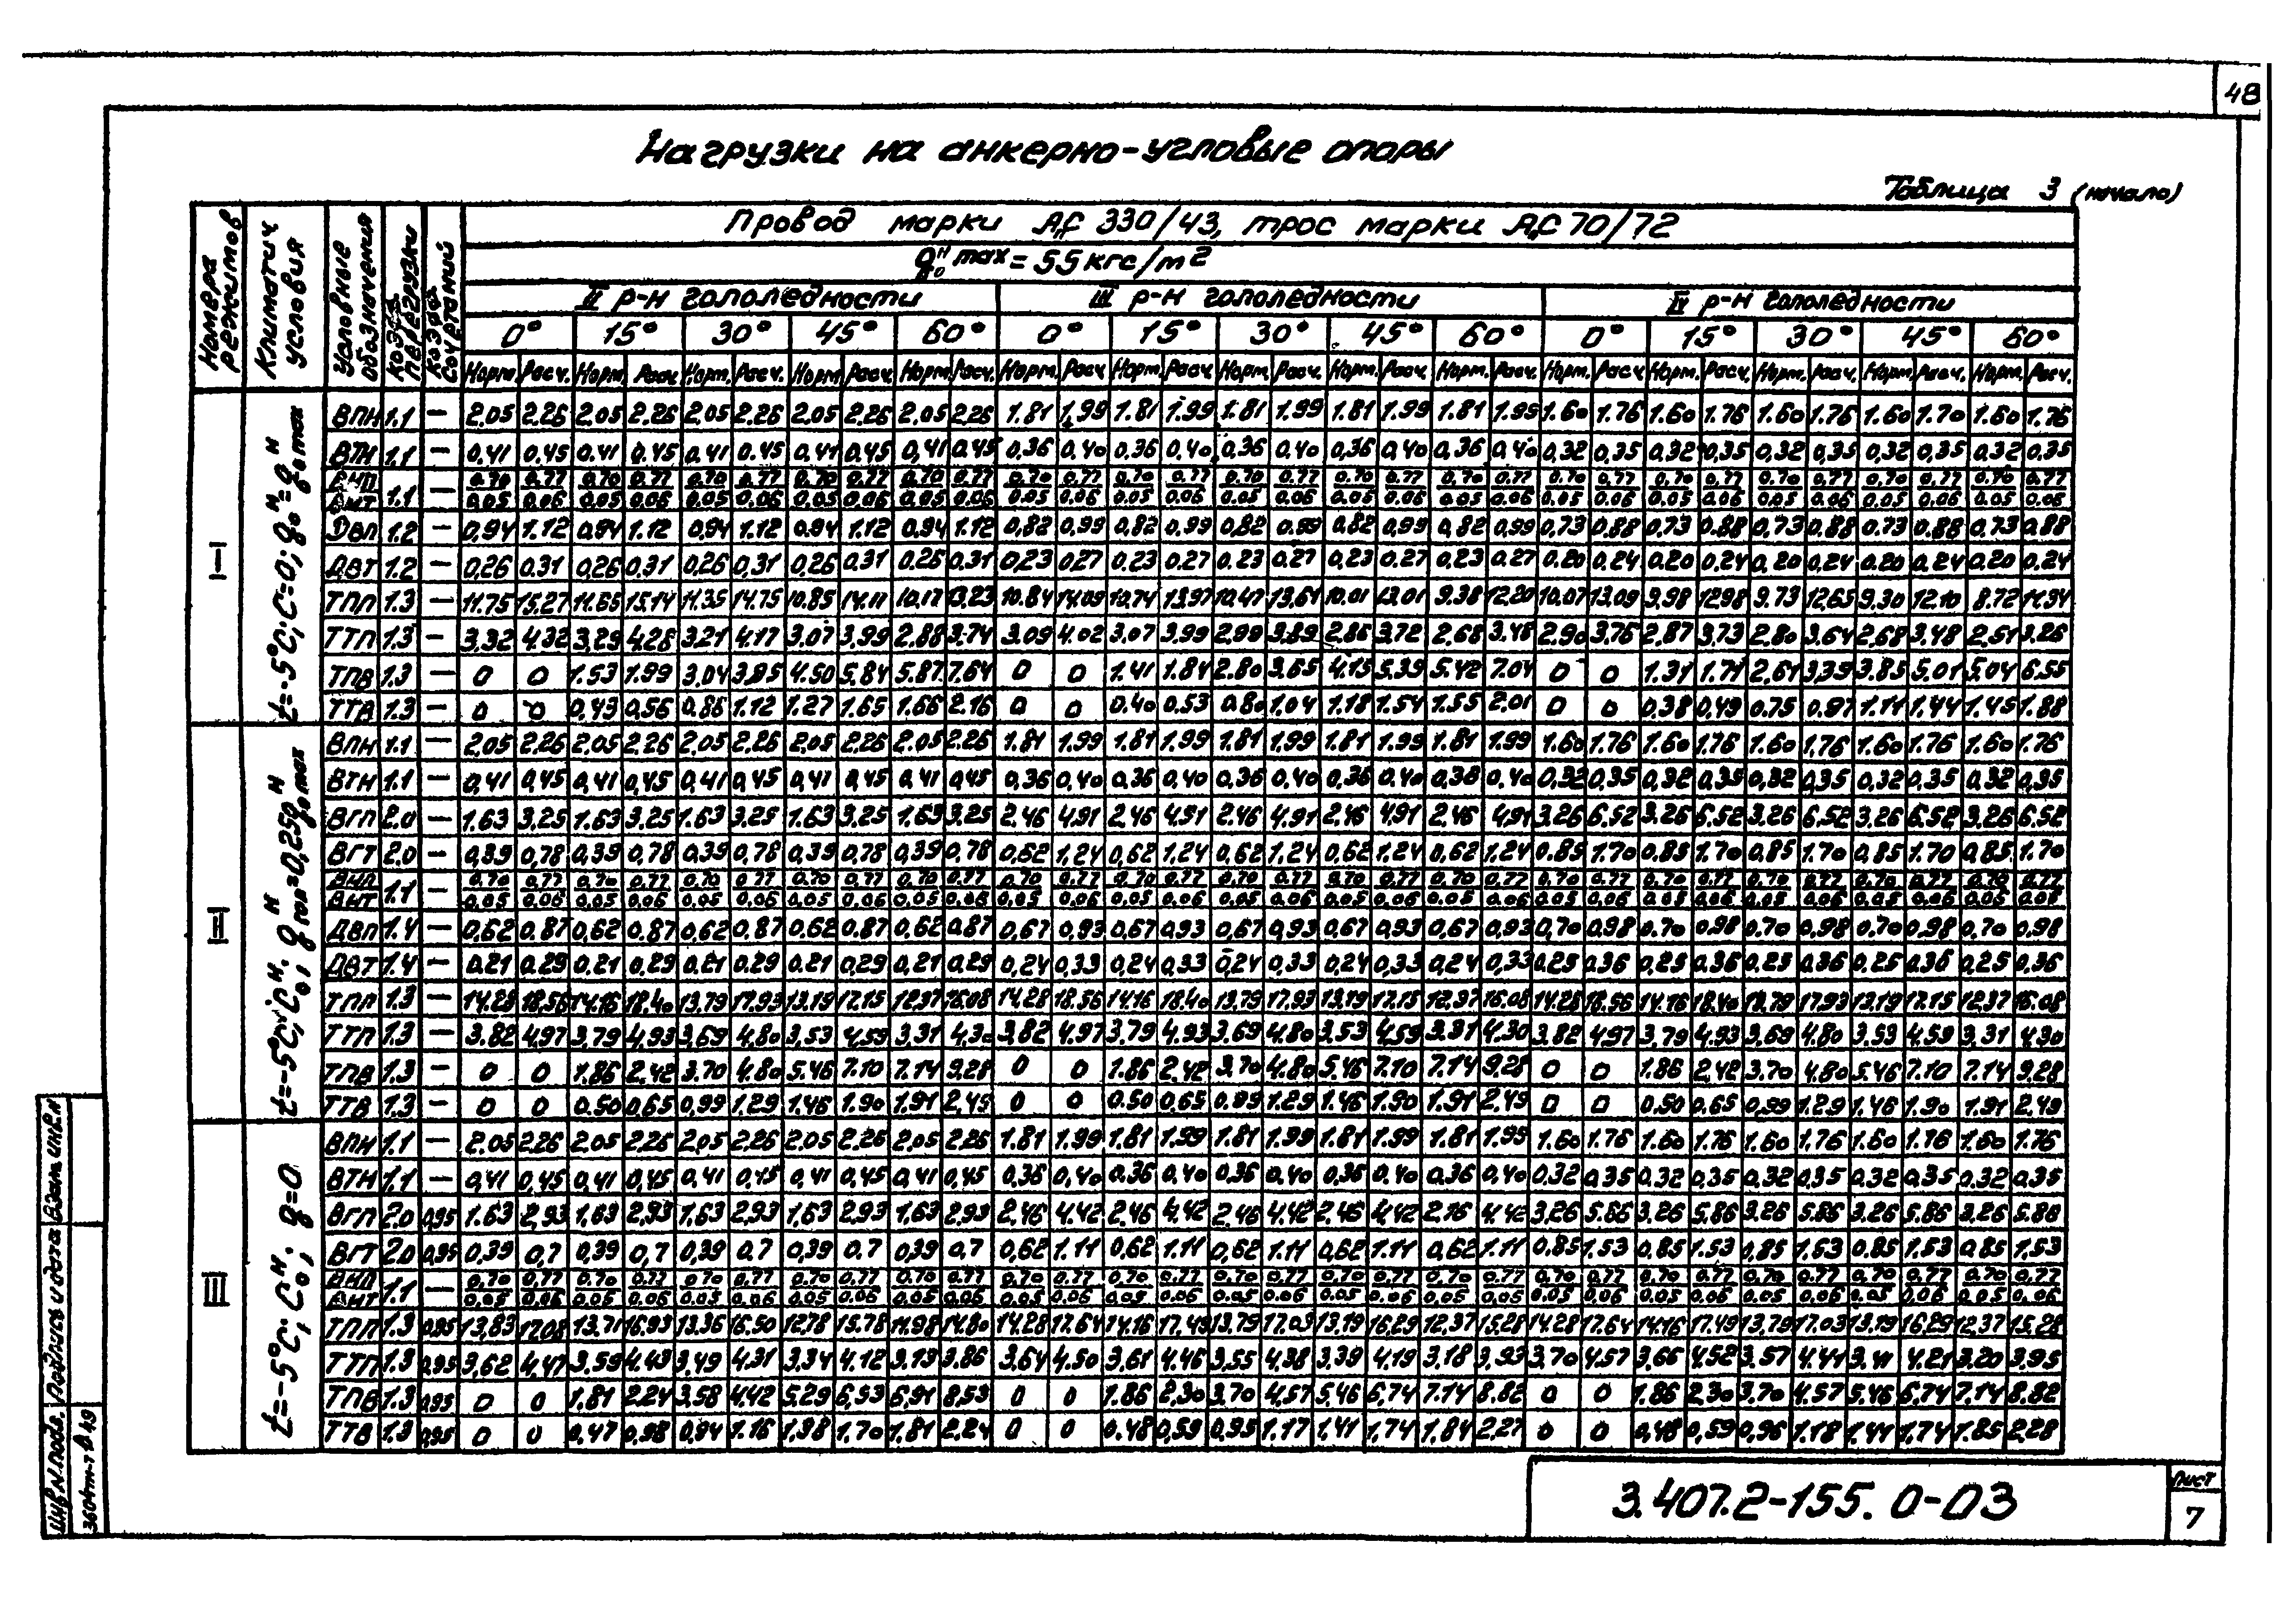 48
Нагрузки на анкерно-угловые опоры
Таблица 3 (начало)
Номера режимов
Климатич. условия
Условные обозначения
Коэф. перегрузки
Коэф. сочетаний
Провод марки АС 330/43, трос марки АС 70/72
q₀ᴴ max = 55 кгс/м²
II р-н гололедности III р-н гололедности IV р-н гололедности
0° 15° 30° 45° 60° 0° 15° 30° 45° 60° 0° 15° 30° 45° 60°
Норм. Расч. Норм. Расч. Норм. Расч. Норм. Расч. Норм. Расч. Норм. Расч. Норм. Расч. Норм. Расч. Норм. Расч. Норм. Расч. Норм. Расч. Норм. Расч. Норм. Расч. Норм. Расч. Норм. Расч.
I
t=-5°C; C=0; q₀ᴴ=q₀ᴴ max
ВПН 1.1 — 2.05 2.26 2.05 2.26 2.05 2.26 2.05 2.26 2.05 2.26 1.81 1.99 1.81 1.99 1.81 1.99 1.81 1.99 1.81 1.99 1.60 1.76 1.60 1.76 1.60 1.76 1.60 1.70 1.60 1.76
ВТН 1.1 — 0,41 0,45 0,41 0,45 0,41 0,45 0,41 0,45 0,41 0,45 0,36 0,40 0,36 0,40 0,36 0,40 0,36 0,40 0,36 0,40 0,32 0,35 0,32 0,35 0,32 0,35 0,32 0,35 0,32 0,35
ВНП 0.70 0.77 0.70 0.77 0.70 0.77 0.70 0.77 0.70 0.77 0.70 0.77 0.70 0.77 0.70 0.77 0.70 0.77 0.70 0.77 0.70 0.77 0.70 0.77 0.70 0.77 0.70 0.77 0.70 0.77
ВНТ 1.1 — 0.05 0.06 0.05 0.06 0.05 0.06 0.05 0.06 0.05 0.06 0.05 0.06 0.05 0.06 0.05 0.06 0.05 0.06 0.05 0.06 0.05 0.06 0.05 0.06 0.05 0.06 0.05 0.06 0.05 0.06
ДВП 1.2 — 0,94 1.12 0,94 1.12 0,94 1.12 0,94 1.12 0,94 1.12 0,82 0,99 0,82 0,99 0,82 0,99 0,82 0,99 0,82 0,99 0,73 0.88 0,73 0.88 0,73 0.88 0,73 0.88 0,73 0,88
ДВТ 1.2 — 0,26 0.31 0,26 0.31 0,26 0,31 0,26 0,31 0.26 0.31 0,23 0,27 0.23 0.27 0.23 0.27 0.23 0.27 0.23 0.27 0.20 0.24 0.20 0.24 0.20 0.24 0.20 0.24 0.20 0.24
ТПП 1.3 — 11.75 15.27 11.65 15.14 11.35 14.75 10.85 14.11 10.17 13.23 10.84 14.09 10.74 13.97 10.47 13.61 10.01 13.01 9.38 12.20 10.07 13.09 9.98 12.98 9.73 12.65 9.30 12.10 8.72 11.34
ТТП 1.3 — 3,32 4.32 3,29 4.28 3.21 4.17 3.07 3,99 2.88 3.74 3.09 4.02 3.07 3.99 2.99 3.89 2.86 3.72 2.68 3.48 2.90 3.76 2.87 3.73 2.80 3.64 2.68 3.48 2.51 3.26
ТПВ 1.3 — 0 0 1.53 1.99 3.04 3,95 4.50 5.84 5.87 7.64 0 0 1.41 1.84 2.80 3.65 4.15 5.39 5.42 7.04 0 0 1.31 1.71 2.61 3,39 3.85 5.01 5.04 6.55
ТТВ 1.3 — 0 0 0,43 0,56 0.86 1.12 1.27 1.65 1.66 2.16 0 0 0.40 0.53 0.80 1.04 1.18 1.54 1.55 2.01 0 0 0.38 0,49 0.75 0.97 1.11 1.44 1.45 1.88
II
t=-5°C; C₀ᴴ; q₀пᴴ=0,25q₀ᴴ max
ВПН 1.1 — 2.05 2.26 2.05 2.26 2.05 2.26 2.05 2.26 2.05 2.26 1.81 1.99 1.81 1.99 1.81 1.99 1.81 1.99 1.81 1.99 1.60 1.76 1.60 1.76 1.60 1.76 1.60 1.76 1.60 1.76
ВТН 1.1 — 0,41 0,45 0,41 0,45 0,41 0,45 0,41 0,45 0,41 0,45 0,36 0,40 0,36 0,40 0,36 0,40 0,36 0,40 0,36 0,40 0,32 0,35 0,32 0,35 0,32 0,35 0,32 0,35 0,32 0,35
ВГП 2.0 — 1.63 3.25 1.63 3.25 1.63 3.25 1.63 3.25 1.63 3.25 2.46 4.91 2.46 4.91 2.46 4.91 2.46 4,91 2.46 4,91 3.26 6.52 3.26 6.52 3.26 6.52 3.26 6.52 3.26 6.52
ВГТ 2.0 — 0,39 0,78 0,39 0,78 0,39 0,78 0,39 0,78 0,39 0,78 0,62 1,24 0,62 1,24 0,62 1,24 0,62 1,24 0,62 1,24 0.85 1.70 0.85 1.70 0,85 1.70 0,85 1.70 0.85 1.70
ВНП 0.70 0.77 0.70 0.77 0.70 0.77 0.70 0.77 0.70 0.77 0.70 0.77 0.70 0.77 0.70 0.77 0.70 0.77 0.70 0.77 0.70 0.77 0.70 0.77 0.70 0.77 0.70 0.77 0.70 0.77
ВНТ 1.1 — 0.05 0.06 0.05 0.06 0.05 0.06 0.05 0.06 0.05 0.06 0.05 0.06 0.05 0.06 0.05 0.06 0.05 0.06 0.05 0.06 0.05 0.06 0.05 0.06 0.05 0.06 0.05 0.06 0.05 0.06
ДВП 1.4 — 0,62 0,87 0,62 0.87 0,62 0,87 0,62 0,87 0,62 0,87 0,67 0,93 0,67 0,93 0,67 0,93 0,67 0,93 0,67 0,93 0,70 0,98 0.70 0,98 0.70 0,98 0.70 0,98 0.70 0.98
ДВТ 1.4 — 0.21 0.29 0.21 0.29 0.21 0.29 0.21 0.29 0.21 0.29 0,24 0,33 0,24 0,33 0,24 0,33 0,24 0,33 0,24 0,33 0.25 0.36 0.25 0.36 0.25 0.36 0.25 0.36 0.25 0,36
ТПП 1.3 — 14.28 18,56 14.16 18.40 13,79 17,93 13,19 17.15 12,37 16.08 14.28 18.56 14.16 18.40 13,79 17.93 13.19 17.15 12.37 16.08 14.28 18.56 14.16 18.40 13.79 17.93 13.19 17.15 12.37 16.08
ТТП 1.3 — 3.82 4,97 3,79 4,93 3,69 4.80 3,53 4,59 3.31 4,30 3,82 4,97 3,79 4.93 3.69 4.80 3.53 4.59 3.31 4.30 3.82 4.97 3,79 4.93 3.69 4.80 3.53 4.59 3,31 4.30
ТПВ 1.3 — 0 0 1.86 2.42 3.70 4.80 5.46 7.10 7.14 9.28 0 0 1.86 2.42 3.70 4.80 5.46 7.10 7.14 9.28 0 0 1.86 2,42 3.70 4.80 5.46 7.10 7.14 9.28
ТТВ 1.3 — 0 0 0.50 0,65 0,99 1.29 1.46 1.90 1.91 2.49 0 0 0.50 0,65 0.99 1.29 1.46 1.90 1.91 2.49 0 0 0.50 0.65 0,99 1.29 1.46 1.90 1.91 2.49
III
t=-5°C; C₀ᴴ; q=0
ВПН 1.1 — 2.05 2.26 2.05 2.26 2.05 2.26 2.05 2.26 2.05 2.26 1.81 1.99 1.81 1.99 1.81 1.99 1.81 1.99 1.81 1.99 1.60 1.76 1.60 1.76 1.60 1.76 1.60 1.76 1.60 1.76
ВТН 1.1 — 0,41 0,45 0,41 0,45 0,41 0,45 0,41 0,45 0,41 0,45 0,36 0,40 0.36 0.40 0,36 0,40 0,36 0,40 0,36 0,40 0.32 0.35 0.32 0.35 0.32 0.35 0.32 0.35 0.32 0.35
ВГП 2.0 0,95 1.63 2,93 1,63 2,93 1,63 2,93 1,63 2.93 1.63 2.93 2.46 4.42 2.46 4.42 2.46 4.42 2.46 4,42 2.46 4.42 3,26 5.86 3.26 5.86 3.26 5.86 3.26 5.86 3.26 5.86
ВГТ 2.0 0,95 0,39 0,7 0,39 0,7 0,39 0,7 0,39 0,7 0,39 0,7 0,62 1.11 0,62 1.11 0,62 1.11 0,62 1.11 0,62 1.11 0,85 1.53 0.85 1.53 0,85 1,53 0.85 1.53 0.85 1,53
ВНП 0.70 0.77 0.70 0.77 0.70 0.77 0.70 0.77 0.70 0.77 0.70 0.77 0.70 0.77 0.70 0.77 0.70 0.77 0.70 0.77 0.70 0.77 0.70 0.77 0.70 0.77 0.70 0.77 0.70 0.77
ВНТ 1.1 — 0.05 0.06 0.05 0.06 0.05 0.06 0.05 0.06 0.05 0.06 0.05 0.06 0.05 0.06 0.05 0.06 0.05 0.06 0.05 0.05 0.05 0.06 0.05 0.06 0.05 0.06 0.05 0.06 0.05 0.06
ТПП 1.3 0,95 13,83 17.08 13.71 16.93 13.36 16.50 12,78 15.78 11.98 14.80 14.28 17.64 14.16 17.49 13.79 17.03 13.19 16,29 12,37 15.28 14.28 17.64 14.16 17.49 13,79 17.03 13.19 16.29 12,37 15.28
ТТП 1.3 0,95 3,62 4,47 3.59 4.43 3,49 4.31 3,34 4.12 3.13 3,86 3,64 4.50 3.61 4.46 3,55 4,38 3.39 4.19 3,18 3,93 3.70 4.57 3,66 4.52 3.57 4.41 3.41 4.21 3.20 3.95
ТПВ 1.3 0,95 0 0 1.81 2.24 3.58 4.42 5.29 6,53 6,91 8.53 0 0 1.86 2,30 3,70 4,57 5.46 6,74 7.14 8.82 0 0 1.86 2.30 3.70 4.57 5.46 6,74 7.14 8.82
ТТВ 1.3 0,95 0 0 0,47 0,58 0,94 1.16 1,38 1.70 1.81 2.24 0 0 0.48 0,59 0,95 1.17 1.41 1,74 1.84 2.27 0 0 0,48 0,59 0,96 1.18 1.44 1,74 1.85 2.28
Инв.N подл. Подпись и дата Взам инв.N
3.407.2-155. 0-03
Лист
7